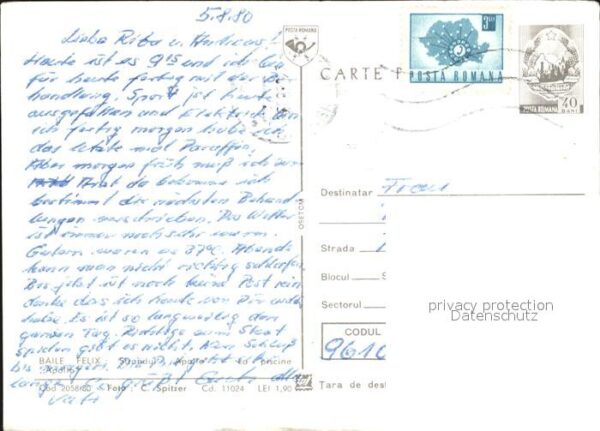 5.8.80
Liebe Rita u.
Heute ist es 9¹⁵ und ich bin
für heute fertig mit der Be-
handlung. Sport ist heute
ausgefallen und Elektrisch bin
ich fertig morgen habe ich
das letzte mal Paraffin.
Aber morgen früh muß ich zum
Arzt da bekomme ich
bestimmt die nächsten Behand
lungen verschrieben. Das Wetter
ist immer noch sehr warm.
Gestern waren es 37°C. Abends
kann man nicht richtig schlafen.
Bis jetzt ist noch keine Post
denke das ich heute von Dir
habe. Es ist so langweilig den
ganzen Tag. Richtige zum Skat
spielen gibt es nicht. Nun Schluß
bis morgen.
Vati
BAILE FELIX : Ştrandul „Apollo" cu piscine
"Apollo"
Cod 2058/80 Foto : C. Spitzer Cd. 11024 LEI 1,90
OSETCM
POSTA ROMANA
CARTE P
3 LEI
POSTA ROMANA
POSTA ROMANA 40 BANI
Destinatar
Strada
Blocul
Sectorul
CODUL
9610
Ţara de dest
privacy protection
Datenschutz